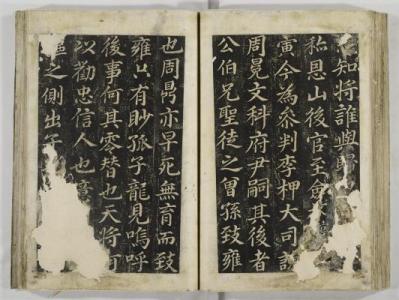 知將誰與
恩山後官至僉
寅今為叅判李柙大司
周冕文科府尹嗣其後者
公伯兄聖徒之曾孫致雍
也周昺亦早死無育而致
雍只有眇孤子龍見嗚呼
後事何其零替也天將何
以勸忠信人也
之側出